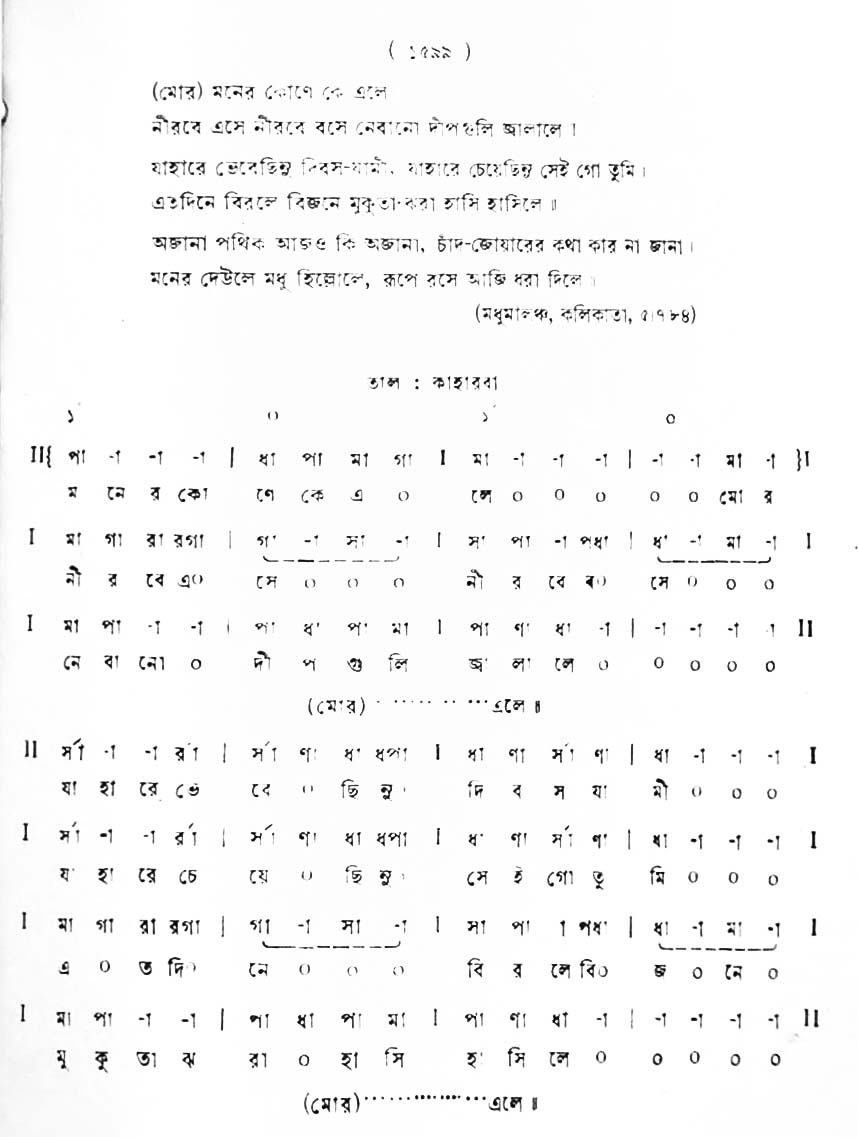 ( ১৫৯৯ )
(মোর) মনের কোণে কে এলে
নীরবে এসে নীরবে বসে নেবানো দীপগুলি জ্বালালে ।
যাহারে ভেবেছিনু দিবস-যামী, যাহারে চেয়েছিনু সেই গো তুমি ।
এতদিনে বিরলে বিজনে মুকুতা-ঝরা হাসি হাসিলে ॥
অজানা পথিক আজও কি অজানা, চাঁদ-জোয়ারের কথা কার না জানা ।
মনের দেউলে মধু হিল্লোলে, রূপে রসে আজি ধরা দিলে ।
(মধুমালঞ্চ, কলিকাতা, ৫।৭৮৪)
তাল : কাহারবা
১´ ০ ১´ ০
II{ পা -া -া -া | ধা পা মা গা I মা -া -া -া | -া -া মা -া }I
ম নে র কো ণে কে এ ০ লে ০ ০ ০ ০ ০ মো র
I মা গা রা রগা | গা -া সা -া I সা পা -া পধা | ধা -া মা -া I
নী র বে এ০ সে ০ ০ ০ নী র বে ব০ সে ০ ০ ০
I মা পা -া -া | পা ধা পা মা I পা ণা ধা -া | -া -া -া -া II
নে বা নো ০ দী প গু লি জ্বা লা লে ০ ০ ০ ০ ০
(মোর) ·············এলে ॥
II র্সা -া -া র্রা | র্সা ণা ধা ধপা I ধা ণা র্সা ণা | ধা -া -া -া I
যা হা রে ভে বে ০ ছি নু০ দি ব স যা মী ০ ০ ০
I র্সা -া -া র্রা | র্সা ণা ধা ধপা I ধা ণা র্সা ণা | ধা -া -া -া I
যা হা রে চে য়ে ০ ছি নু০ সে ই গো তু মি ০ ০ ০
I মা গা রা রগা | গা -া সা -া I সা পা া পধা | ধা -া মা -া I
এ ০ ত দি০ নে ০ ০ ০ বি র লে বি০ জ ০ নে ০
I মা পা -া -া | পা ধা পা মা I পা ণা ধা -া | -া -া -া -া II
মু কু তা ঝ রা ০ হা সি হা সি লে ০ ০ ০ ০ ০
(মোর)················এলে ॥